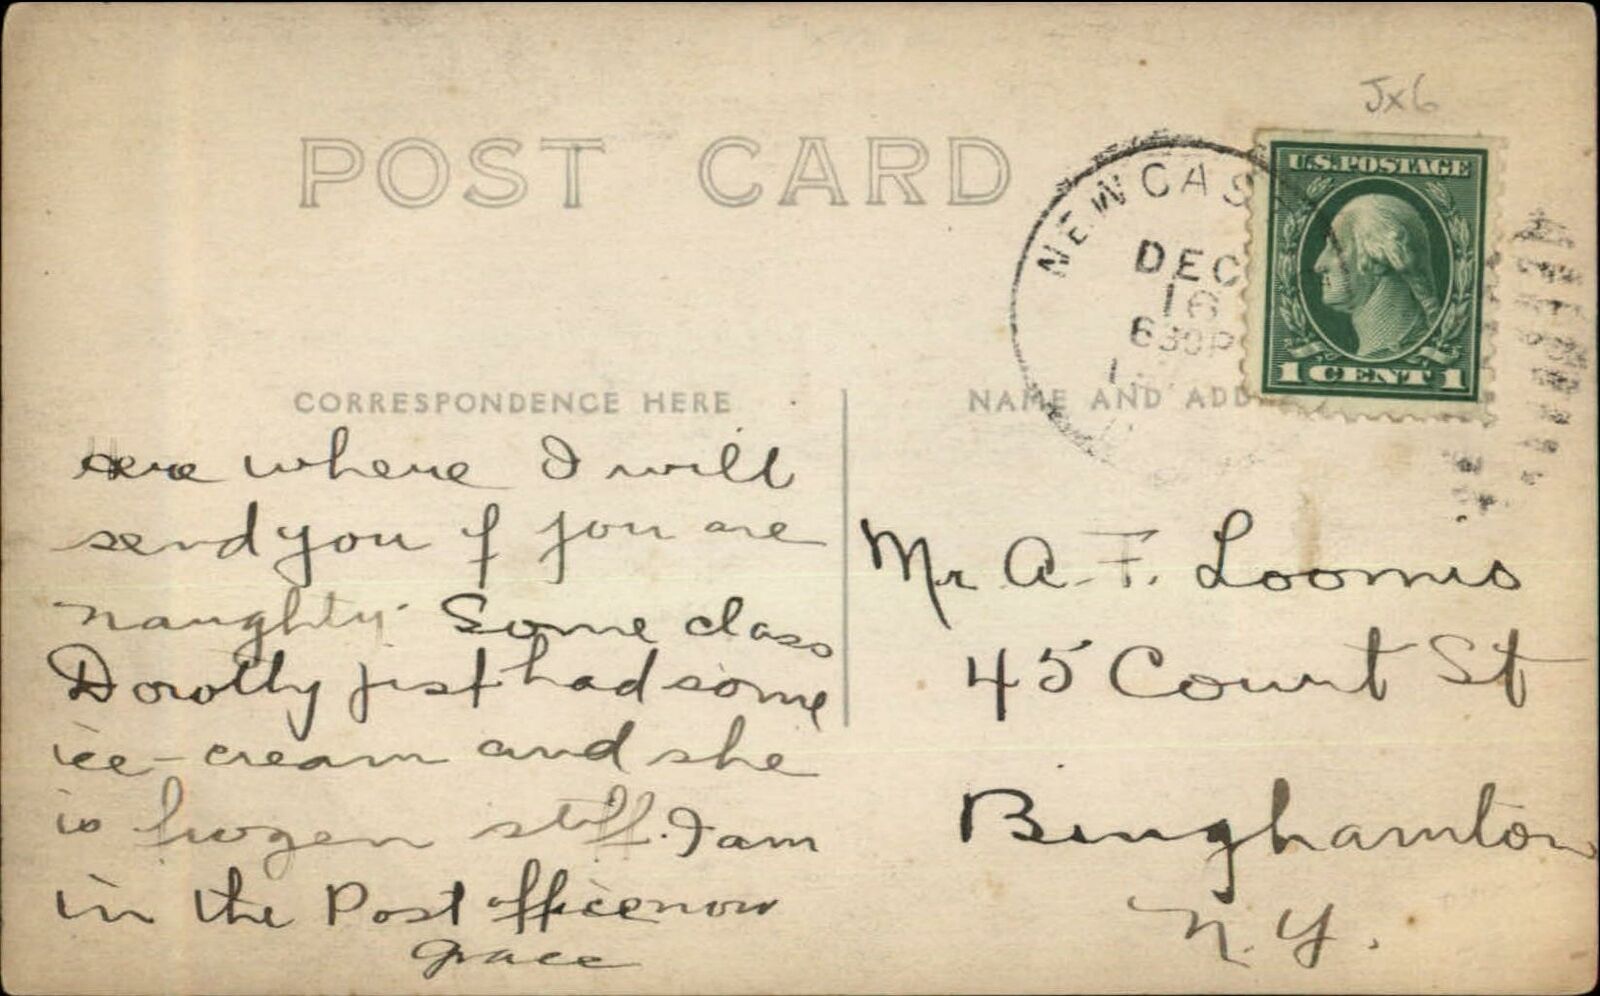 Jx6
POST CARD
NEW CAS
DEC
16
630P
U.S. POSTAGE
1 CENT 1
CORRESPONDENCE HERE
NAME AND ADD
Here where I will
send you if you are
naughty. Some class
Dorothy just had some
ice-cream and she
is frozen stiff. I am
in the Post office now
Grace
Mr A. F. Loomis
45 Court St
Binghamton
N.Y.